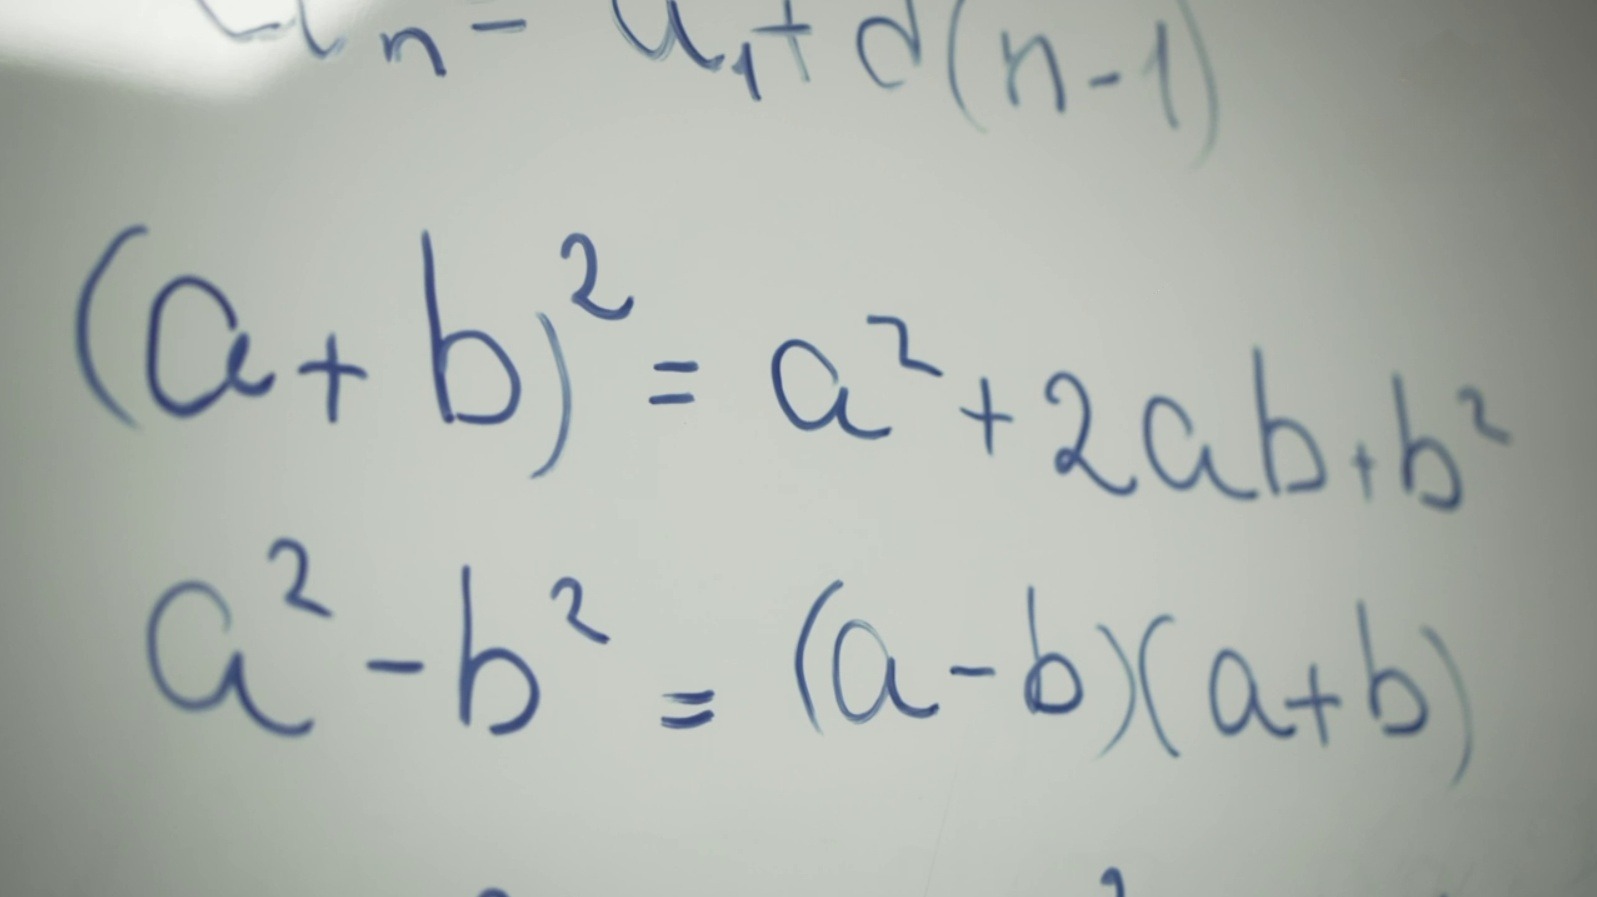 aₙ = a₁ + d(n-1)
(a+b)² = a² + 2ab + b²
a² - b² = (a-b)(a+b)